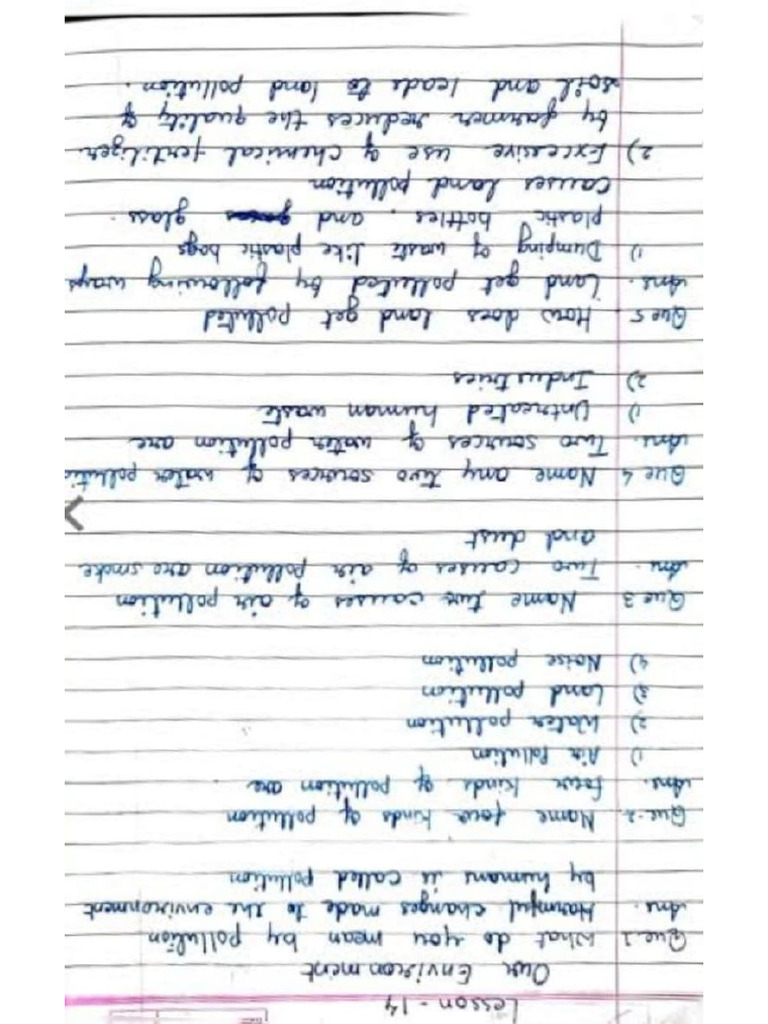 Lesson - 14
Our Environment
Que.1 What do you mean by pollution
Ans. Harmful changes made to the environment
by humans is called pollution
Que.2. Name four kinds of pollution
Ans. four kinds of pollution are
1) Air Pollution
2) Water pollution
3) Land pollution
4) Noise pollution
Que 3 Name two causes of air pollution
Ans. Two causes of air pollution are smoke
and dust
Que 4 Name any two sources of water pollutio
Ans. Two sources of water pollution are
1) Untreated human waste
2) Industries
Que 5. How does land get polluted
Ans. Land get polluted by following ways
1) Dumping of waste like plastic bags
plastic bottles, and glass.
causes land pollution
2) Excessive use of chemical fertilizer
by farmer reduces the quality of
soil and leads to land pollution.